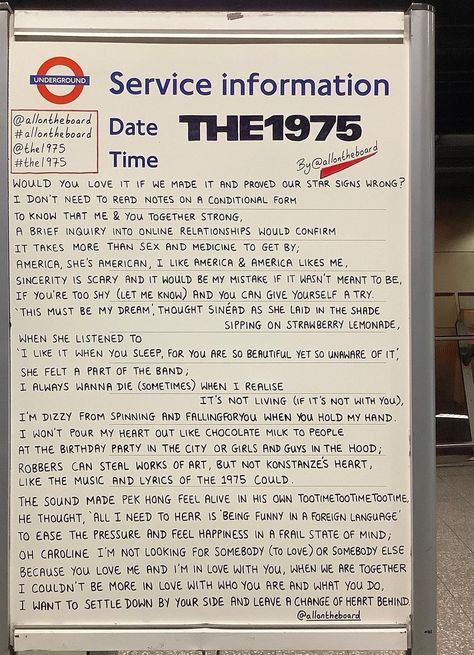 UNDERGROUND
Service information
@allontheboard
#allontheboard
@the1975
#the1975
Date THE1975
Time
By @allontheboard
WOULD YOU LOVE IT IF WE MADE IT AND PROVED OUR STAR SIGNS WRONG?
I DON'T NEED TO READ NOTES ON A CONDITIONAL FORM
TO KNOW THAT ME & YOU TOGETHER STRONG,
A BRIEF INQUIRY INTO ONLINE RELATIONSHIPS WOULD CONFIRM
IT TAKES MORE THAN SEX AND MEDICINE TO GET BY;
AMERICA, SHE'S AMERICAN, I LIKE AMERICA & AMERICA LIKES ME,
SINCERITY IS SCARY AND IT WOULD BE MY MISTAKE IF IT WASN'T MEANT TO BE,
IF YOU'RE TOO SHY (LET ME KNOW) AND YOU CAN GIVE YOURSELF A TRY.
'THIS MUST BE MY DREAM', THOUGHT SINÉAD AS SHE LAID IN THE SHADE
SIPPING ON STRAWBERRY LEMONADE,
WHEN SHE LISTENED TO
'I LIKE IT WHEN YOU SLEEP, FOR YOU ARE SO BEAUTIFUL YET SO UNAWARE OF IT,'
SHE FELT A PART OF THE BAND;
I ALWAYS WANNA DIE (SOMETIMES) WHEN I REALISE
IT'S NOT LIVING (IF IT'S NOT WITH YOU),
I'M DIZZY FROM SPINNING AND FALLINGFORYOU WHEN YOU HOLD MY HAND.
I WON'T POUR MY HEART OUT LIKE CHOCOLATE MILK TO PEOPLE
AT THE BIRTHDAY PARTY IN THE CITY OR GIRLS AND GUYS IN THE HOOD;
ROBBERS CAN STEAL WORKS OF ART, BUT NOT KONSTANZE'S HEART,
LIKE THE MUSIC AND LYRICS OF THE 1975 COULD.
THE SOUND MADE PEK HONG FEEL ALIVE IN HIS OWN TOOTIMETOOTIMETOOTIME,
HE THOUGHT, 'ALL I NEED TO HEAR IS 'BEING FUNNY IN A FOREIGN LANGUAGE'
TO EASE THE PRESSURE AND FEEL HAPPINESS IN A FRAIL STATE OF MIND;
OH CAROLINE I'M NOT LOOKING FOR SOMEBODY (TO LOVE) OR SOMEBODY ELSE
BECAUSE YOU LOVE ME AND I'M IN LOVE WITH YOU, WHEN WE ARE TOGETHER
I COULDN'T BE MORE IN LOVE WITH WHO YOU ARE AND WHAT YOU DO,
I WANT TO SETTLE DOWN BY YOUR SIDE AND LEAVE A CHANGE OF HEART BEHIND.
@allontheboard